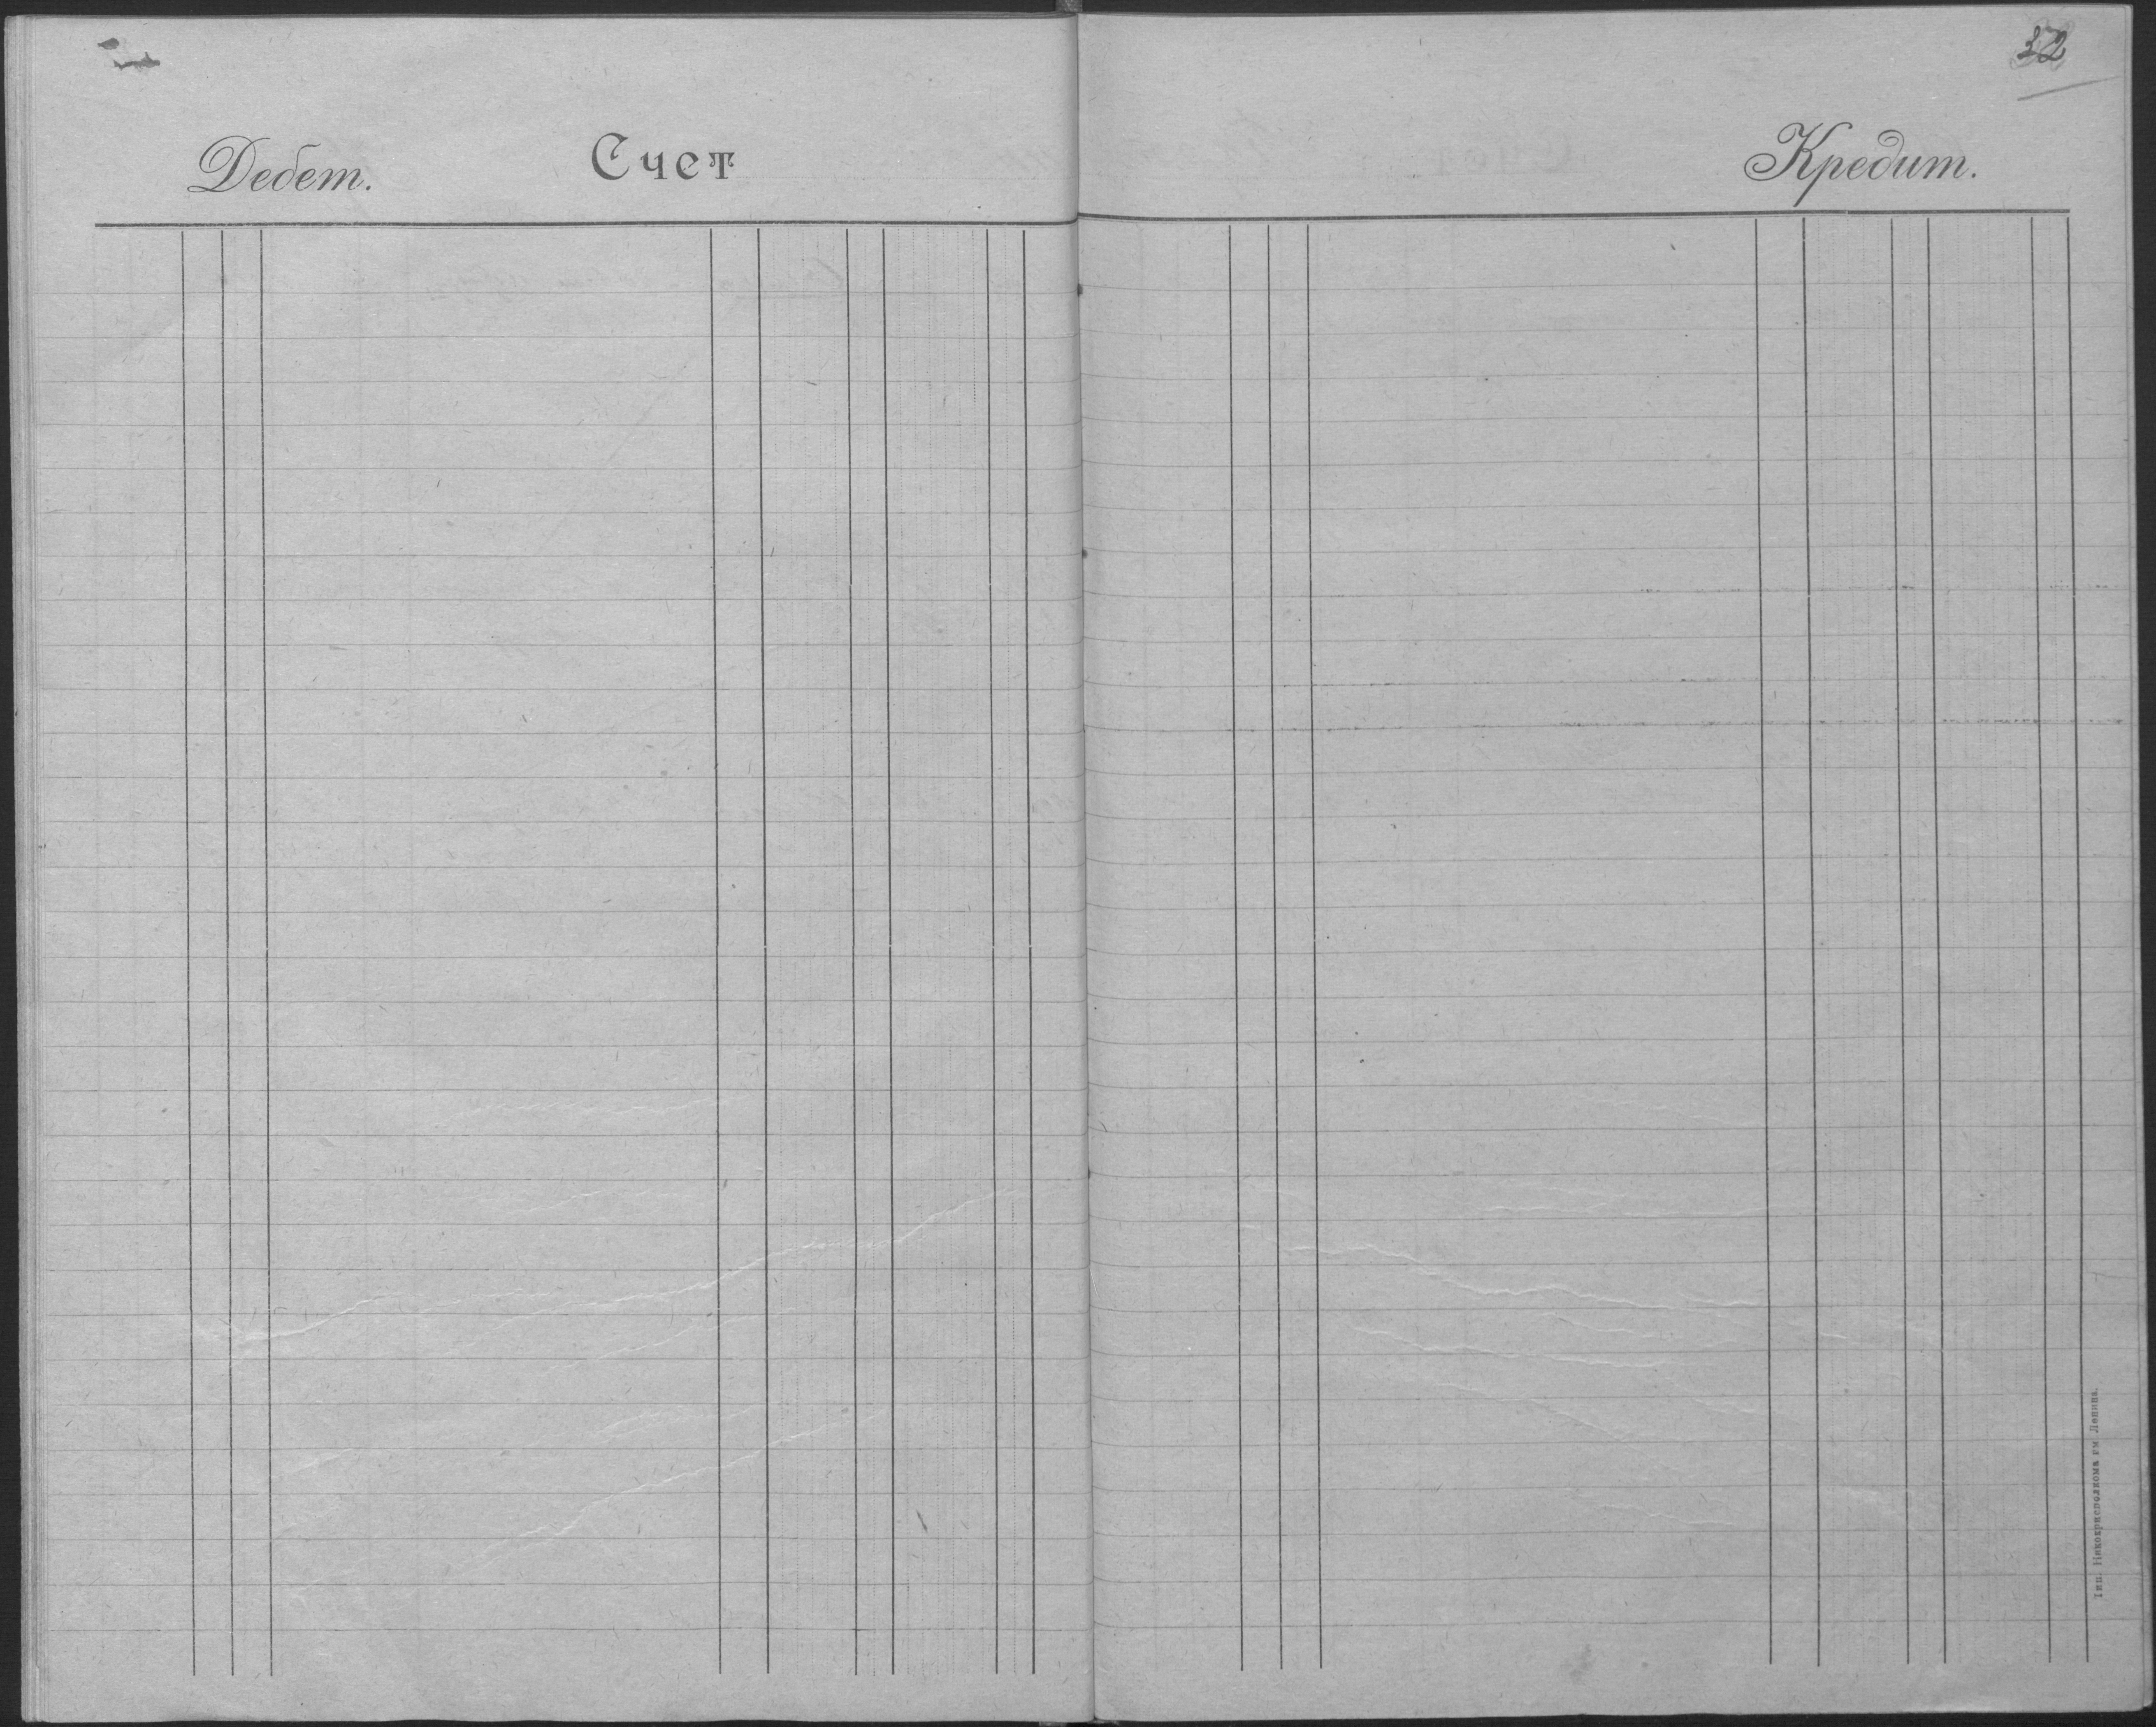 32
Дебет.
Счет
Кредит.
Тип. Никокрисполкома им. Ленина.